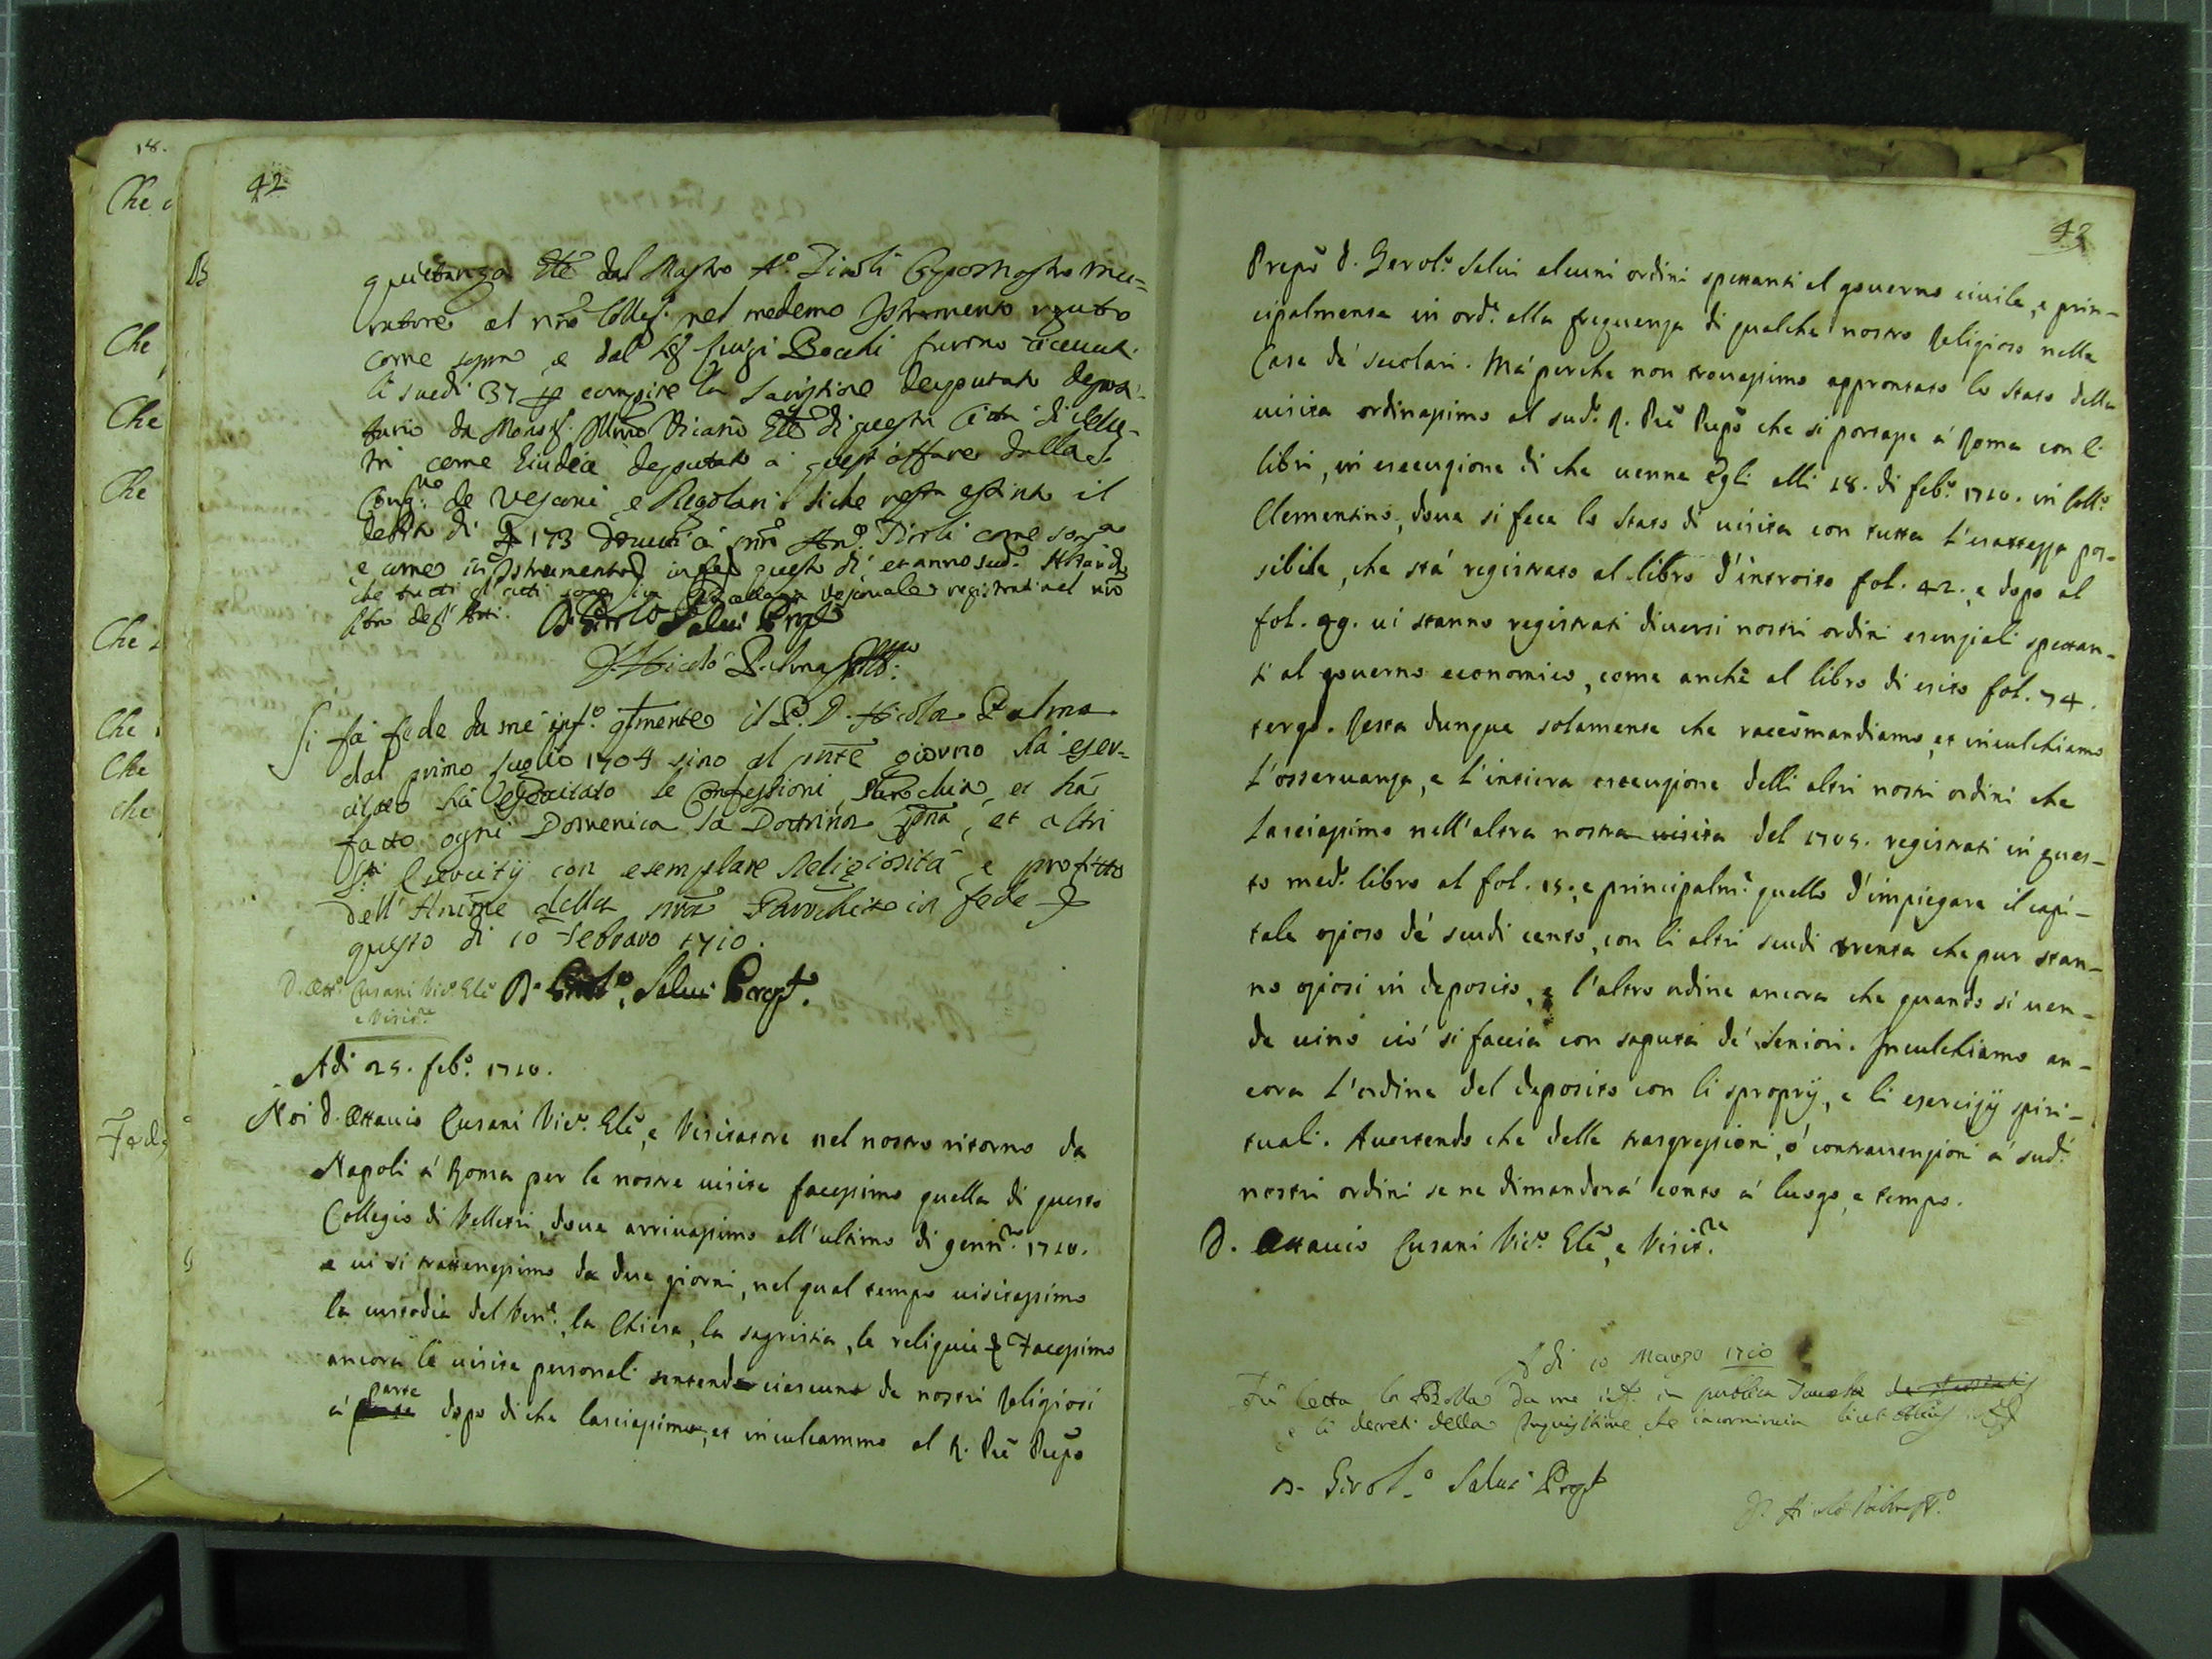 42
quietanza etc dal Mastro Ant.o Tiroli Capomastro mu=
ratore al nro Colleg.o nel medemo Istrumento
come sopra, e dal Sig.r Luigi Bochi furono ricevuti
li scudi 37 compire la
tario da Mons.r Illmo Vicario Gnle di questa Città di Velle-
tri come Giudice deputato a quest'affare dalla S.
Cong.ne de Vescovi, e Regolari siche resta estinto il
debito di 173 Tiroli come sopra
e come in Istrumento questo dì, et anno sud.o
che tutti gl'atti sono in Cancellaria Vescovale registrati nel nro
libro degl'Atti. D. Girol.o Salvi Prep.to
D. Nicolò Palma
Si fà fede da me inf.o qlmente il P. D. Nicola Palma
dal primo Luglio 1704 sino al pnte giorno hà eser-
citato hà esercitato le Confessioni, Parochia, et hà
fatto ogni Domenica la Dottrina Xpna, et altri
S.ti Esercitij con esemplare Religiosità, e profitto
dell'Anime della nra Parochia in fede
questo dì 10 Febraro 1710.
D. Ott.o Cusani Vic.o Gle D. Girol.o Salvi Prep.to
e Visit.re
Adi 25. feb.o 1710.
Noi D. Ottavio Cusani Vic.o Gle, e Visitatore nel nostro ritorno da
Napoli à Roma per le nostre visite facessimo quella di questo
Collegio di Velletri, dove arrivassimo all'ultimo di genn.ro 1710.
e vi si trattenessimo da due giorni, nel qual tempo visitassimo
la custodia del Ven.e, la Chiesa, la sagristia, le reliquie Facessimo
ancora le visite personali sentendo ciascuno de nostri Religiosi
à parte dopo di che lasciassimo, et inculcammo al R. Pre Prepo
43
Prepo D. Gerol.o Salvi alcuni ordini spettanti al governo civile, e prin-
cipalmente in ord.e alla frequenza di qualche nostro Religioso nella
Casa de' scolari. Mà perche non trovassimo approntato lo stato della
visita ordinassimo al sud.o R. Pre Prepo che si portasse à Roma con li
libri, in esecuzione di che venne Egli alli 18. di feb.o 1710. in Coll.o
Clementino, dove si fece lo stato di visita con tutta l'esattezza pos-
sibile, che stà registrato al libro d'introito fol. 42., e dopo al
fol. 99. vi stanno registrati diversi nostri ordini esenziali spettan-
ti al governo economico, come anche al libro di esito fol. 74.
tergo. Resta dunque solamente che raccomandiamo, et inculchiamo
l'osservanza, e l'intiera esecuzione delli altri nostri ordini che
lasciassimo nell'altra nostra visita del 1705. registrati in ques-
to med.o libro al fol. 15., e principalm.e quello d'impiegare il capi-
tale ozioso de' scudi cento, con li altri scudi trenta che pur stan-
no oziosi in deposito, e l'altro ordine ancora che quando si ven-
de vino ciò si faccia con saputa de' Seniori. Inculchiamo an-
cora l'ordine del deposito con li sproprij, e li esercizij spiri-
tuali. Avertendo che delle trasgressioni, ò contravenzioni à sud.i
nostri ordini se ne dimanderà conto à luogo, e tempo.
D. Ottavio Cusani Vic.o Gle, e Visit.re
A dì 10 Marzo 1710
Fù letta la Bolla da me inf.o in publica
e li decreti della Inquisitione che incomincia
D. Girol.o Salvi Prep.to
D. Nicolò Palma